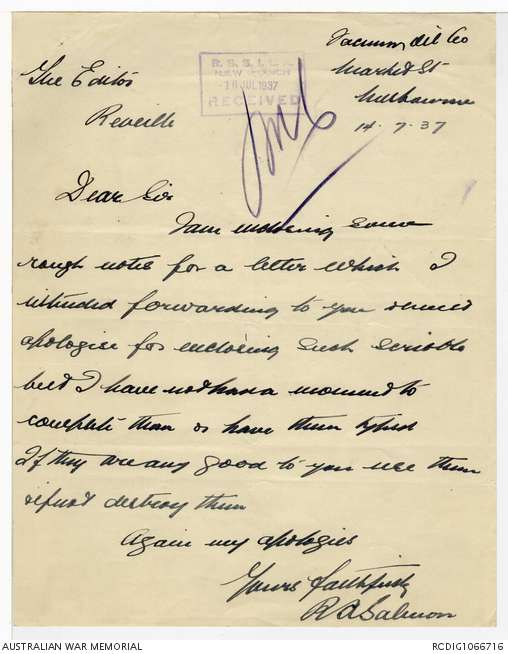 Vacuum Oil Co
Market St
Melbourne
14-7-37
R. S. S. I. L. A.
NEW BRANCH
16 JUL 1937
RECEIVED
The Editor
Reveille
Dear Sir
I am enclosing some
rough notes for a letter which I
intended forwarding to you & must
apologise for enclosing such scribble
but I have not had a moment to
complete them or have them typed
If they are any good to you use them
if not destroy them
Again my apologies
Yours faithfully
R A Salmon
AUSTRALIAN WAR MEMORIAL
RCDIG1066716